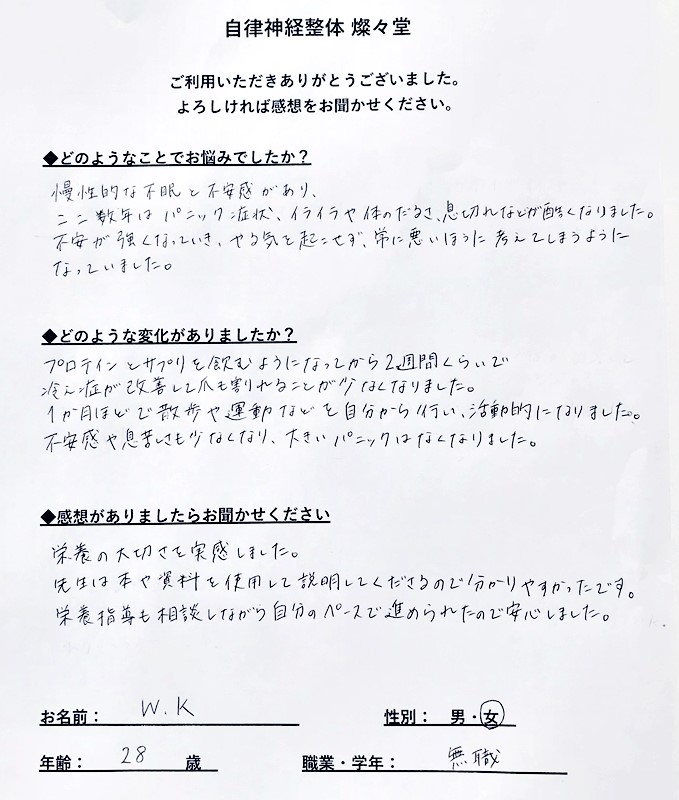 自律神経整体 燦々堂
ご利用いただきありがとうございました。
よろしければ感想をお聞かせください。
◆どのようなことでお悩みでしたか？
慢性的な不眠と不安感があり、
ここ数年はパニック症状、イライラや体のだるさ、息切れなどが酷くなりました。
不安が強くなっていき、やる気を起こせず、常に悪いほうに考えてしまうように
なっていました。
◆どのような変化がありましたか？
プロテインとサプリを飲むようになってから2週間くらいで
冷え症が改善して爪も割れることが少なくなりました。
1か月ほどで散歩や運動などを自分から行い、活動的になりました。
不安感や息苦しさも少なくなり、大きいパニックはなくなりました。
◆感想がありましたらお聞かせください
栄養の大切さを実感しました。
先生は本や資料を使用して説明してくださるので分かりやすかったです。
栄養指導も相談しながら自分のペースで進められたので安心しました。
お名前： W.K 性別： 男・女
年齢： 28 歳 職業・学年： 無職